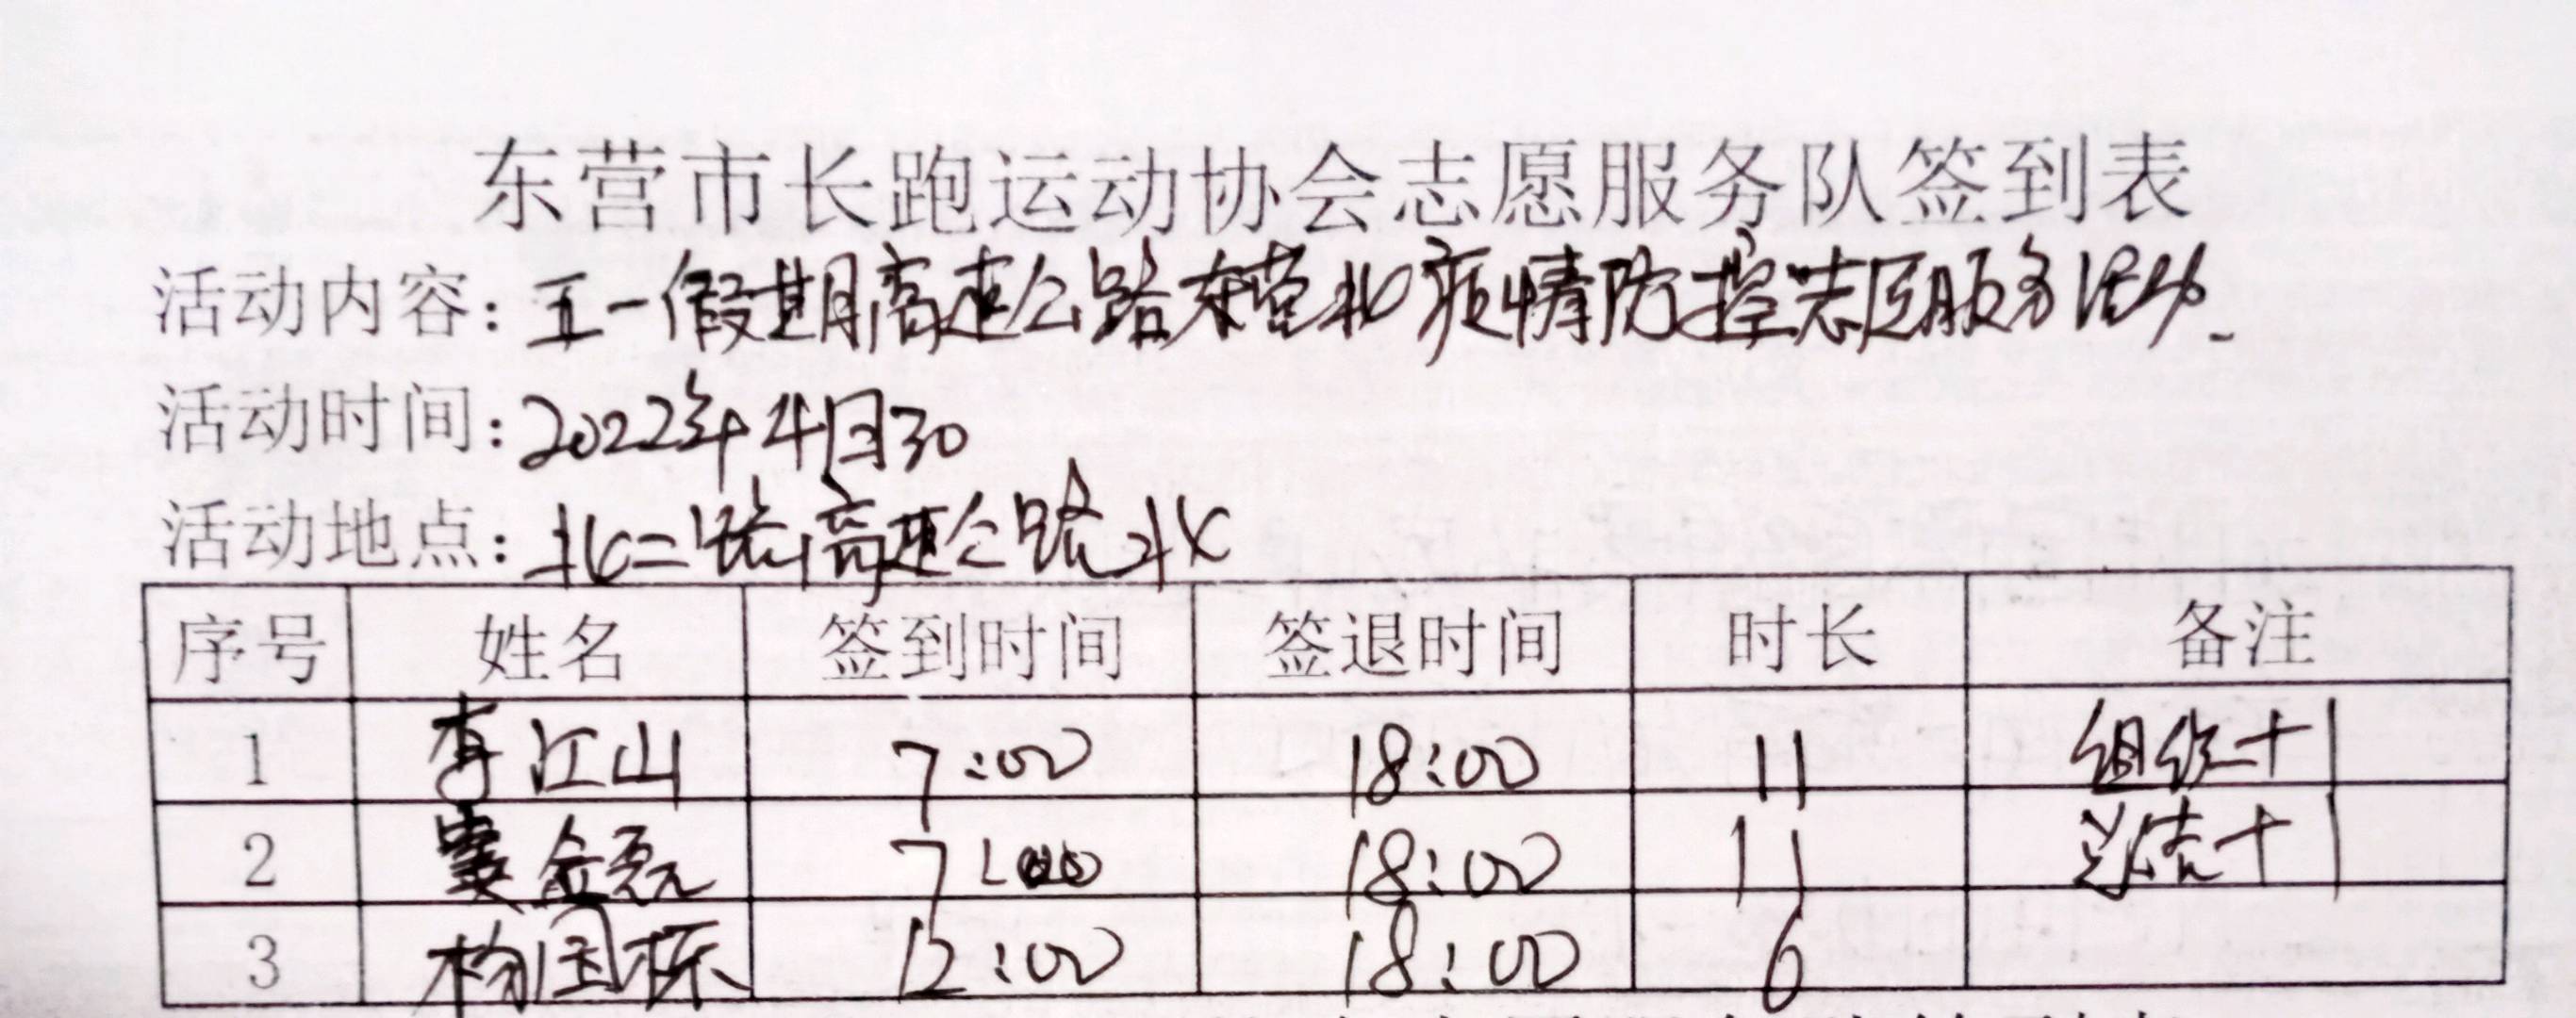 东营市长跑运动协会志愿服务队签到表
活动内容：五一假期高速公路东营北疫情防控志愿服务活动
活动时间：2022年4月30
活动地点：北二路高速公路北
序号 姓名 签到时间 签退时间 时长 备注
1 李江山 7:00 18:00 11 组织+1
2 金磊 7:00 18:00 11 总结+1
3 杨国栋 12:00 18:00 6